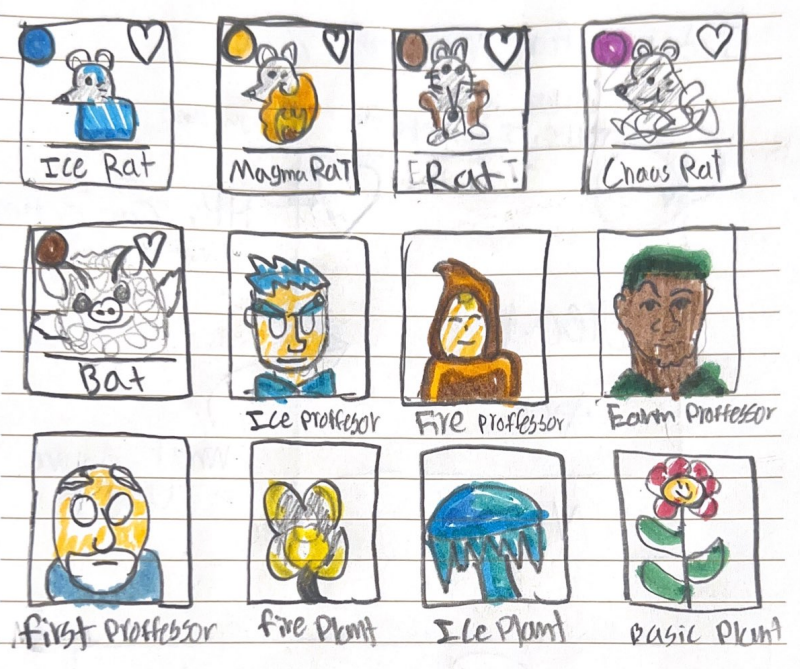 Ice Rat
Magma RaT
ERat
Chaos Rat
Bat
Ice proffessor
Fire proffessor
Earth Proffessor
first proffessor
fire Plant
Ice Plant
Basic Plant